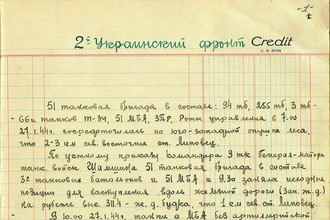 -1-
2й Украинский фронт Credit
51 танковая бригада в составе: 84 тб, 255 тб, 3 тб -
танков Т-34, 51 МБА, Роты управления в 7.00
27.1.44г. сосредоточилась по юго-западной опушке леса,
что 2-3 км сев. восточнее от. Липовец.
По устному приказу командира 3 тк Генерал-майора
танк. войск Шамшина 51 танковая бригада в составе
3х танковых батальонов и 51 МБА к 9.30 заняла исходные
позиции для наступления вдоль железной дороги (зап. ж.д.)
на рубеже выс. 311.4 - ж.д. будка, что 1 км сев. Липовец.
В 10.00 27.1.44г. танки и МБА без артиллерийской